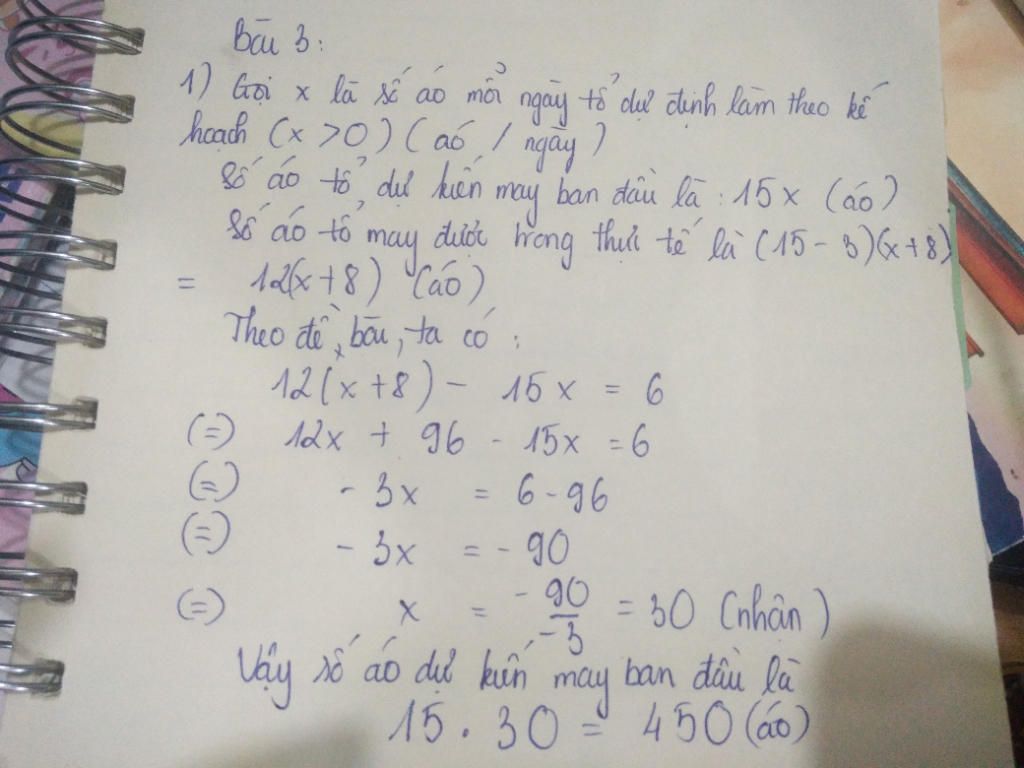 Bài 3:
1) Gọi x là số áo mỗi ngày tổ dự định làm theo kế
hoạch (x > 0) (áo / ngày)
Số áo tổ dự kiến may ban đầu là : 15x (áo)
Số áo tổ may được trong thực tế là (15 - 3)(x + 8)
= 12(x + 8) (áo)
Theo đề bài, ta có :
12(x + 8) - 15x = 6
(=) 12x + 96 - 15x = 6
(=) - 3x = 6 - 96
(=) - 3x = - 90
(=) x = -90/-3 = 30 (nhận)
Vậy số áo dự kiến may ban đầu là
15 . 30 = 450 (áo)